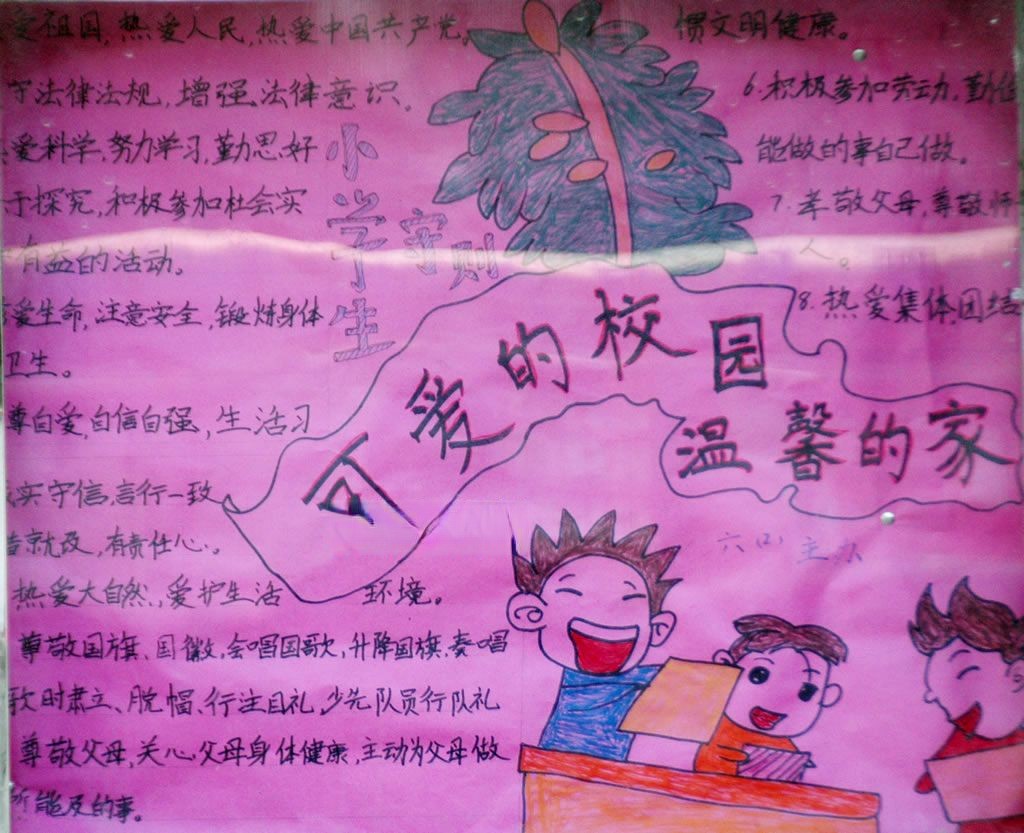 爱祖国,热爱人民,热爱中国共产党。
守法律法规,增强法律意识。
爱科学,努力学习,勤思好
于探究,积极参加社会实
有益的活动。
爱生命,注意安全,锻炼身体
卫生。
尊自爱,自信自强,生活习
惯文明健康。
6.积极参加劳动,勤俭
能做的事自己做。
7.孝敬父母,尊敬师
人。
8.热爱集体,团结
小学生
守则
可爱的校园
温馨的家
六(4)主办
实守信,言行一致
错就改,有责任心。
热爱大自然,爱护生活环境。
尊敬国旗、国徽,会唱国歌,升降国旗、奏唱
歌时肃立、脱帽、行注目礼,少先队员行队礼
尊敬父母,关心父母身体健康,主动为父母做
所能及的事。